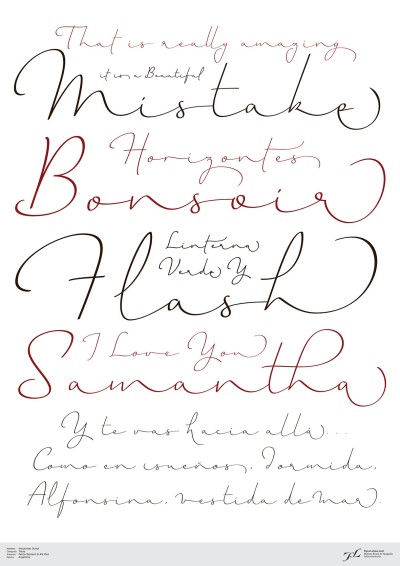 That is really amazing
it is a Beautiful
Mistake
Horizontes
Bonsoir
Linterna
Verde Y
Flash
I Love You
Samantha
Y te vas hacia allá...
Como en sueños, Dormida,
Alfonsina, vestida de mar.